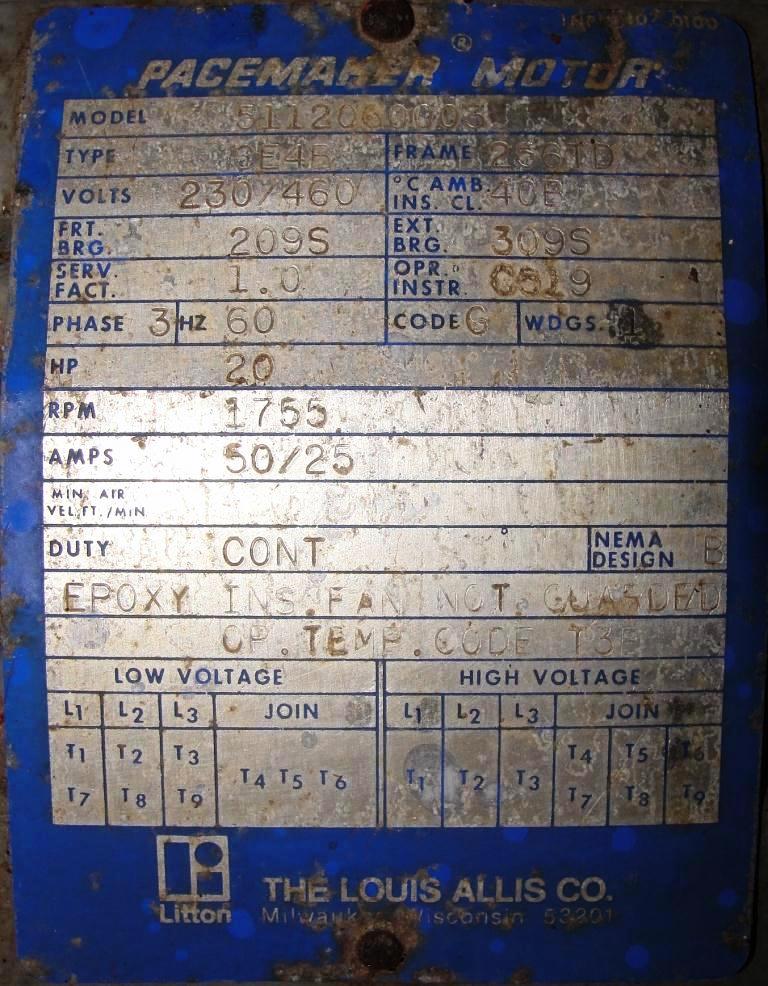 PACEMAKER® MOTOR
MODEL 5112060003
TYPE FRAME
VOLTS 230/460 °C AMB. INS. CL. 40B
FRT. BRG. 209S EXT. BRG. 309S
SERV. FACT. 1.0 OPR. INSTR. C519
PHASE 3 HZ 60 CODE G WDGS. 1
HP 20
RPM 1755
AMPS 50/25
MIN. AIR VEL.FT./MIN
DUTY CONT NEMA DESIGN B
EPOXY INS.FAN NOT GUARDED
OP.TEMP.CODE
LOW VOLTAGE HIGH VOLTAGE
L1 L2 L3 JOIN L1 L2 L3 JOIN
T1 T2 T3 T4 T5 T6 T1 T2 T3 T4 T5 T6
T7 T8 T9 T7 T8 T9
Litton THE LOUIS ALLIS CO.
Milwaukee, Wisconsin 53201